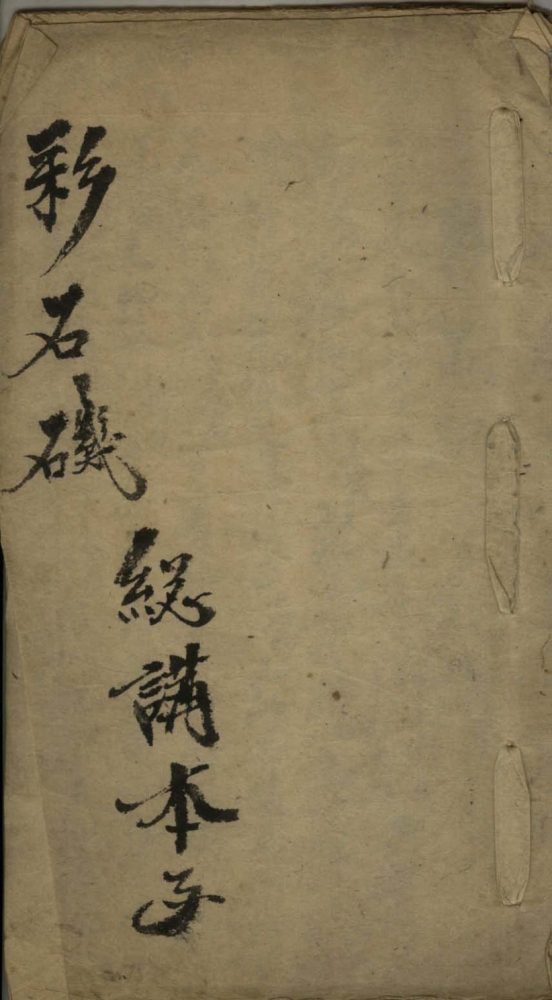 彩石磯
総講本子